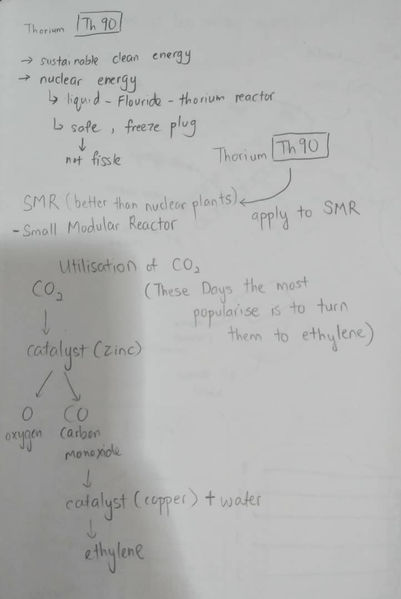 Thorium Th 90
→ sustainable clean energy
→ nuclear energy
↳ liquid - Flouride - thorium reactor
↳ safe, freeze plug
↓
not fissle
Thorium Th 90
SMR (better than nuclear plants)
- Small Modular Reactor
apply to SMR
Utilisation of CO₂
(These Days the most
popularise is to turn
them to ethylene)
CO₂
↓
catalyst (zinc)
O CO
oxygen carbon
monoxide
↓
catalyst (copper) + water
↓
ethylene